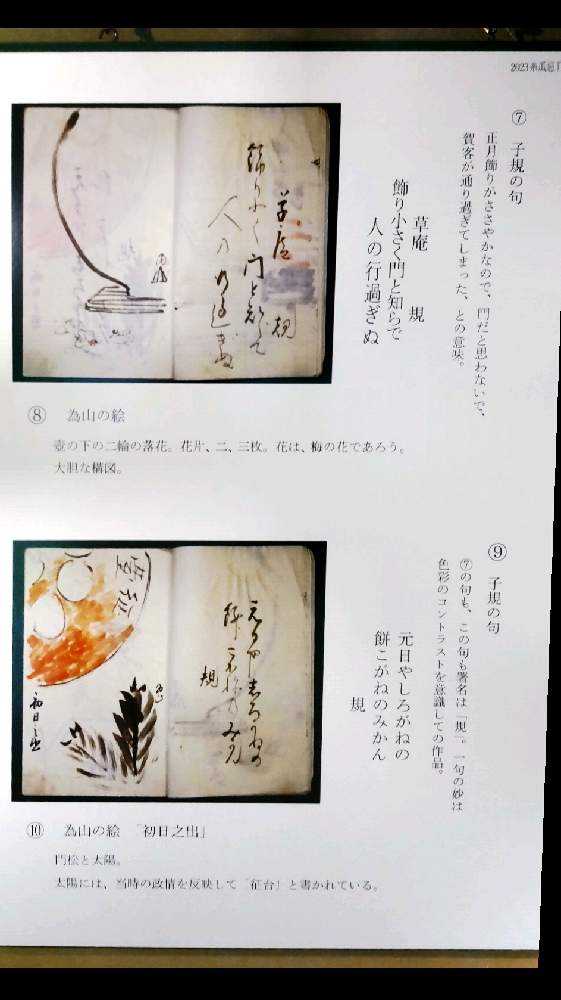 2023糸瓜忌
⑦ 子規の句
正月飾りがささやかなので、門だと思わないで、
賀客が通り過ぎてしまった、との意味。
草庵 規
飾り小さく門と知らで
人の行過ぎぬ
草庵 規
飾り小く門と知らて
人の行過ぎぬ
⑧ 為山の絵
壺の下の二輪の落花。花片、二、三枚。花は、梅の花であろう。
大胆な構図。
⑨ 子規の句
⑦の句も、この句も署名は「規」。一句の妙は
色彩のコントラストを意識しての作品。
元日やしろがねの
餅こがねのみかん
規
元日やしろかねの
餅こかねのみかん
規
初日之出
⑩ 為山の絵 「初日之出」
門松と太陽。
太陽には、当時の政情を反映して「征台」と書かれている。